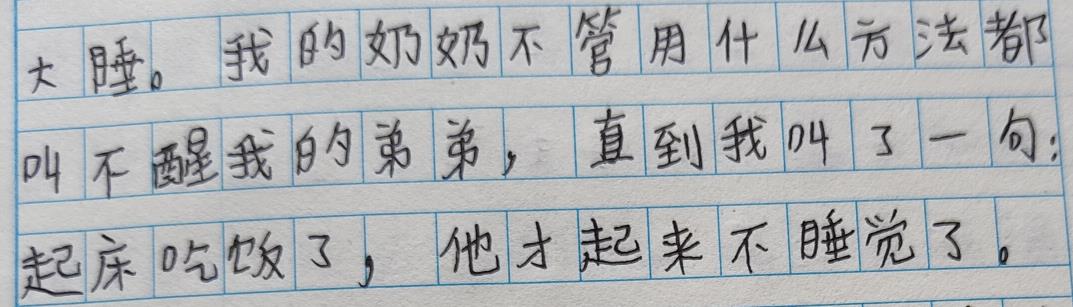 大睡。我的奶奶不管用什么方法都
叫不醒我的弟弟，直到我叫了一句：
起床吃饭了，他才起来不睡觉了。